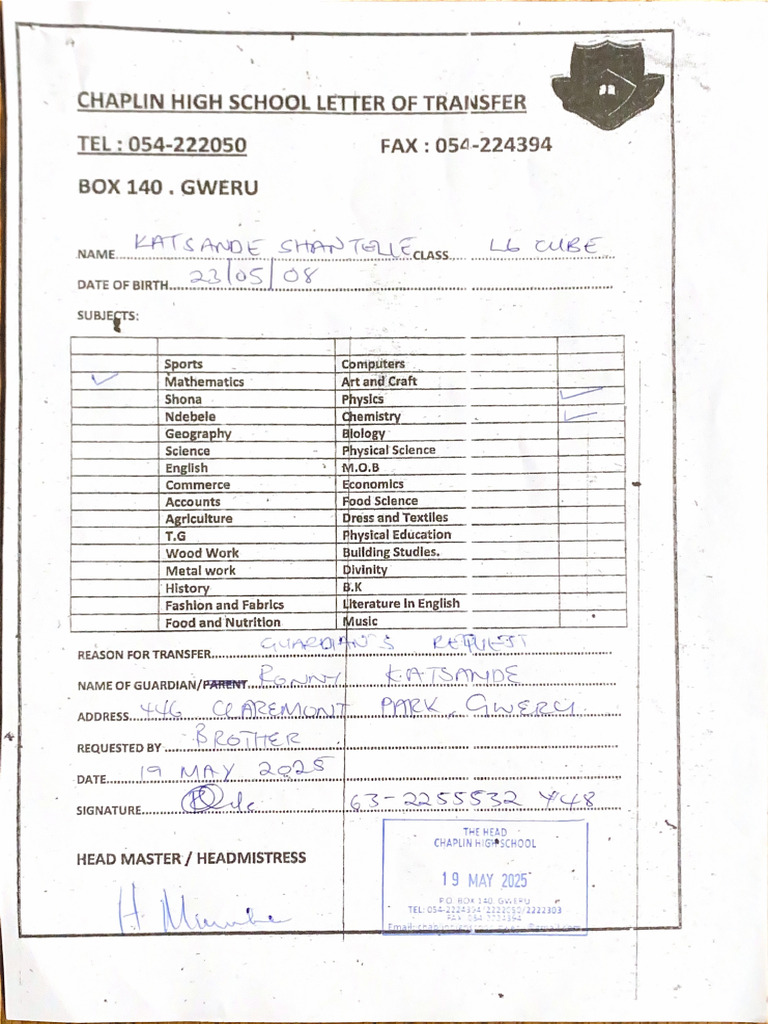 CHAPLIN HIGH SCHOOL LETTER OF TRANSFER
TEL : 054-222050 FAX : 054-224394
BOX 140 . GWERU
NAME KATSANDE SHANTELLE CLASS L6 CUBE
DATE OF BIRTH 23/05/08
SUBJECTS:
Sports Computers
Mathematics Art and Craft
Shona Physics
Ndebele Chemistry
Geography Biology
Science Physical Science
English M.O.B
Commerce Economics
Accounts Food Science
Agriculture Dress and Textiles
T.G Physical Education
Wood Work Building Studies.
Metal work Divinity
History B.K
Fashion and Fabrics Literature In English
Food and Nutrition Music
REASON FOR TRANSFER GUARDIAN'S REQUEST
NAME OF GUARDIAN/PARENT RONNY KATSANDE
ADDRESS 446 CLAREMONT PARK, GWERU
REQUESTED BY BROTHER
DATE 19 MAY 2025
SIGNATURE 63-2255532 Y48
HEAD MASTER / HEADMISTRESS
THE HEAD
CHAPLIN HIGH SCHOOL
19 MAY 2025
P.O. BOX 140, GWERU
TEL: 054-2224394/2222050/2222303
FAX: 054-2224394
Email: